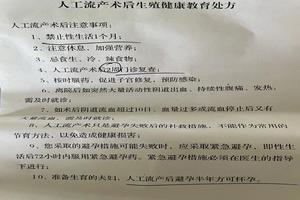 人工流产术后生殖健康教育处方
人工流产术后注意事项：
1、禁止性生活1个月；
2、注意休息，加强营养；
3、忌食生、冷、辣食物；
4、人工流产术后2周门诊复查；
5、按时服药，促进子宫修复，预防感染；
6、离院后如突然大量活动性阴道出血、持续性腹痛、发热，
需及时就诊；
7、如术后阴道流血超过10日，血量过多或流血停止后又有
需及时就诊；
8、人工流产术只是避孕失败后的补救措施，不能作为常用的
节育方法，以免造成健康损害；
9、您采取的避孕措施可能失败时，应采取紧急避孕，即性生
活后72小时内服用紧急避孕药。紧急避孕措施必须在医生的指导
下进行；
10、准备生育的夫妇，人工流产后避孕半年方可怀孕。